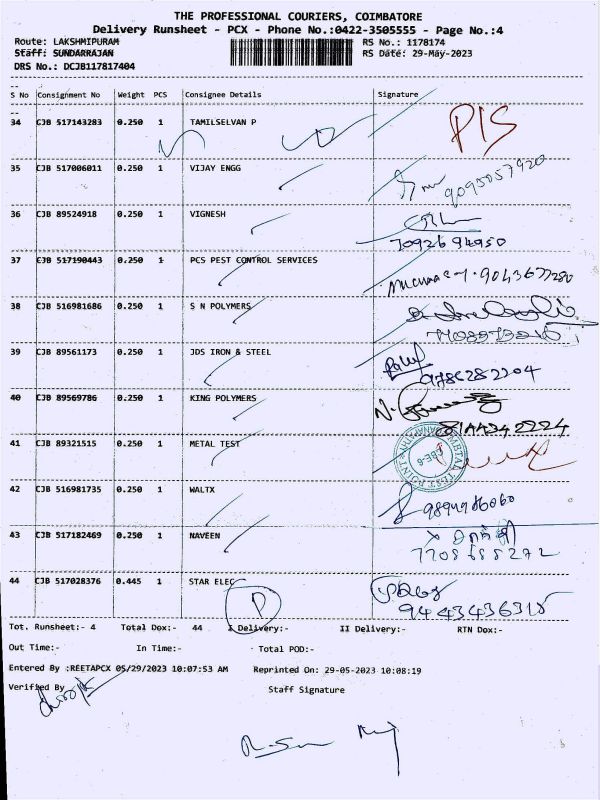 THE PROFESSIONAL COURIERS, COIMBATORE
Delivery Runsheet - PCX - Phone No.:0422-3505555 - Page No.:4
Route: LAKSHMIPURAM RS No.: 1178174
Staff: SUNDARRAJAN RS Date: 29-May-2023
DRS No.: DCJB117817404
S No Consignment No Weight PCS Consignee Details Signature
34 CJB 517143283 0.250 1 TAMILSELVAN P
35 CJB 517006011 0.250 1 VIJAY ENGG
9095057920
36 CJB 89524918 0.250 1 VIGNESH
7092694950
37 CJB 517190443 0.250 1 PCS PEST CONTROL SERVICES
38 CJB 516981686 0.250 1 S N POLYMERS
39 CJB 89561173 0.250 1 JDS IRON & STEEL
9786282204
40 CJB 89569786 0.250 1 KING POLYMERS
41 CJB 89321515 0.250 1 METAL TEST
METAL TEST POINT
42 CJB 516981735 0.250 1 WALTX
43 CJB 517182469 0.250 1 NAVEEN
44 CJB 517028376 0.445 1 STAR ELEC
P
9443436315
Tot. Runsheet:- 4 Total Dox:- 44 I Delivery:- II Delivery:- RTN Dox:-
Out Time:- In Time:- Total POD:-
Entered By :REETAPCX 05/29/2023 10:07:53 AM Reprinted On: 29-05-2023 10:08:19
Verified By Staff Signature